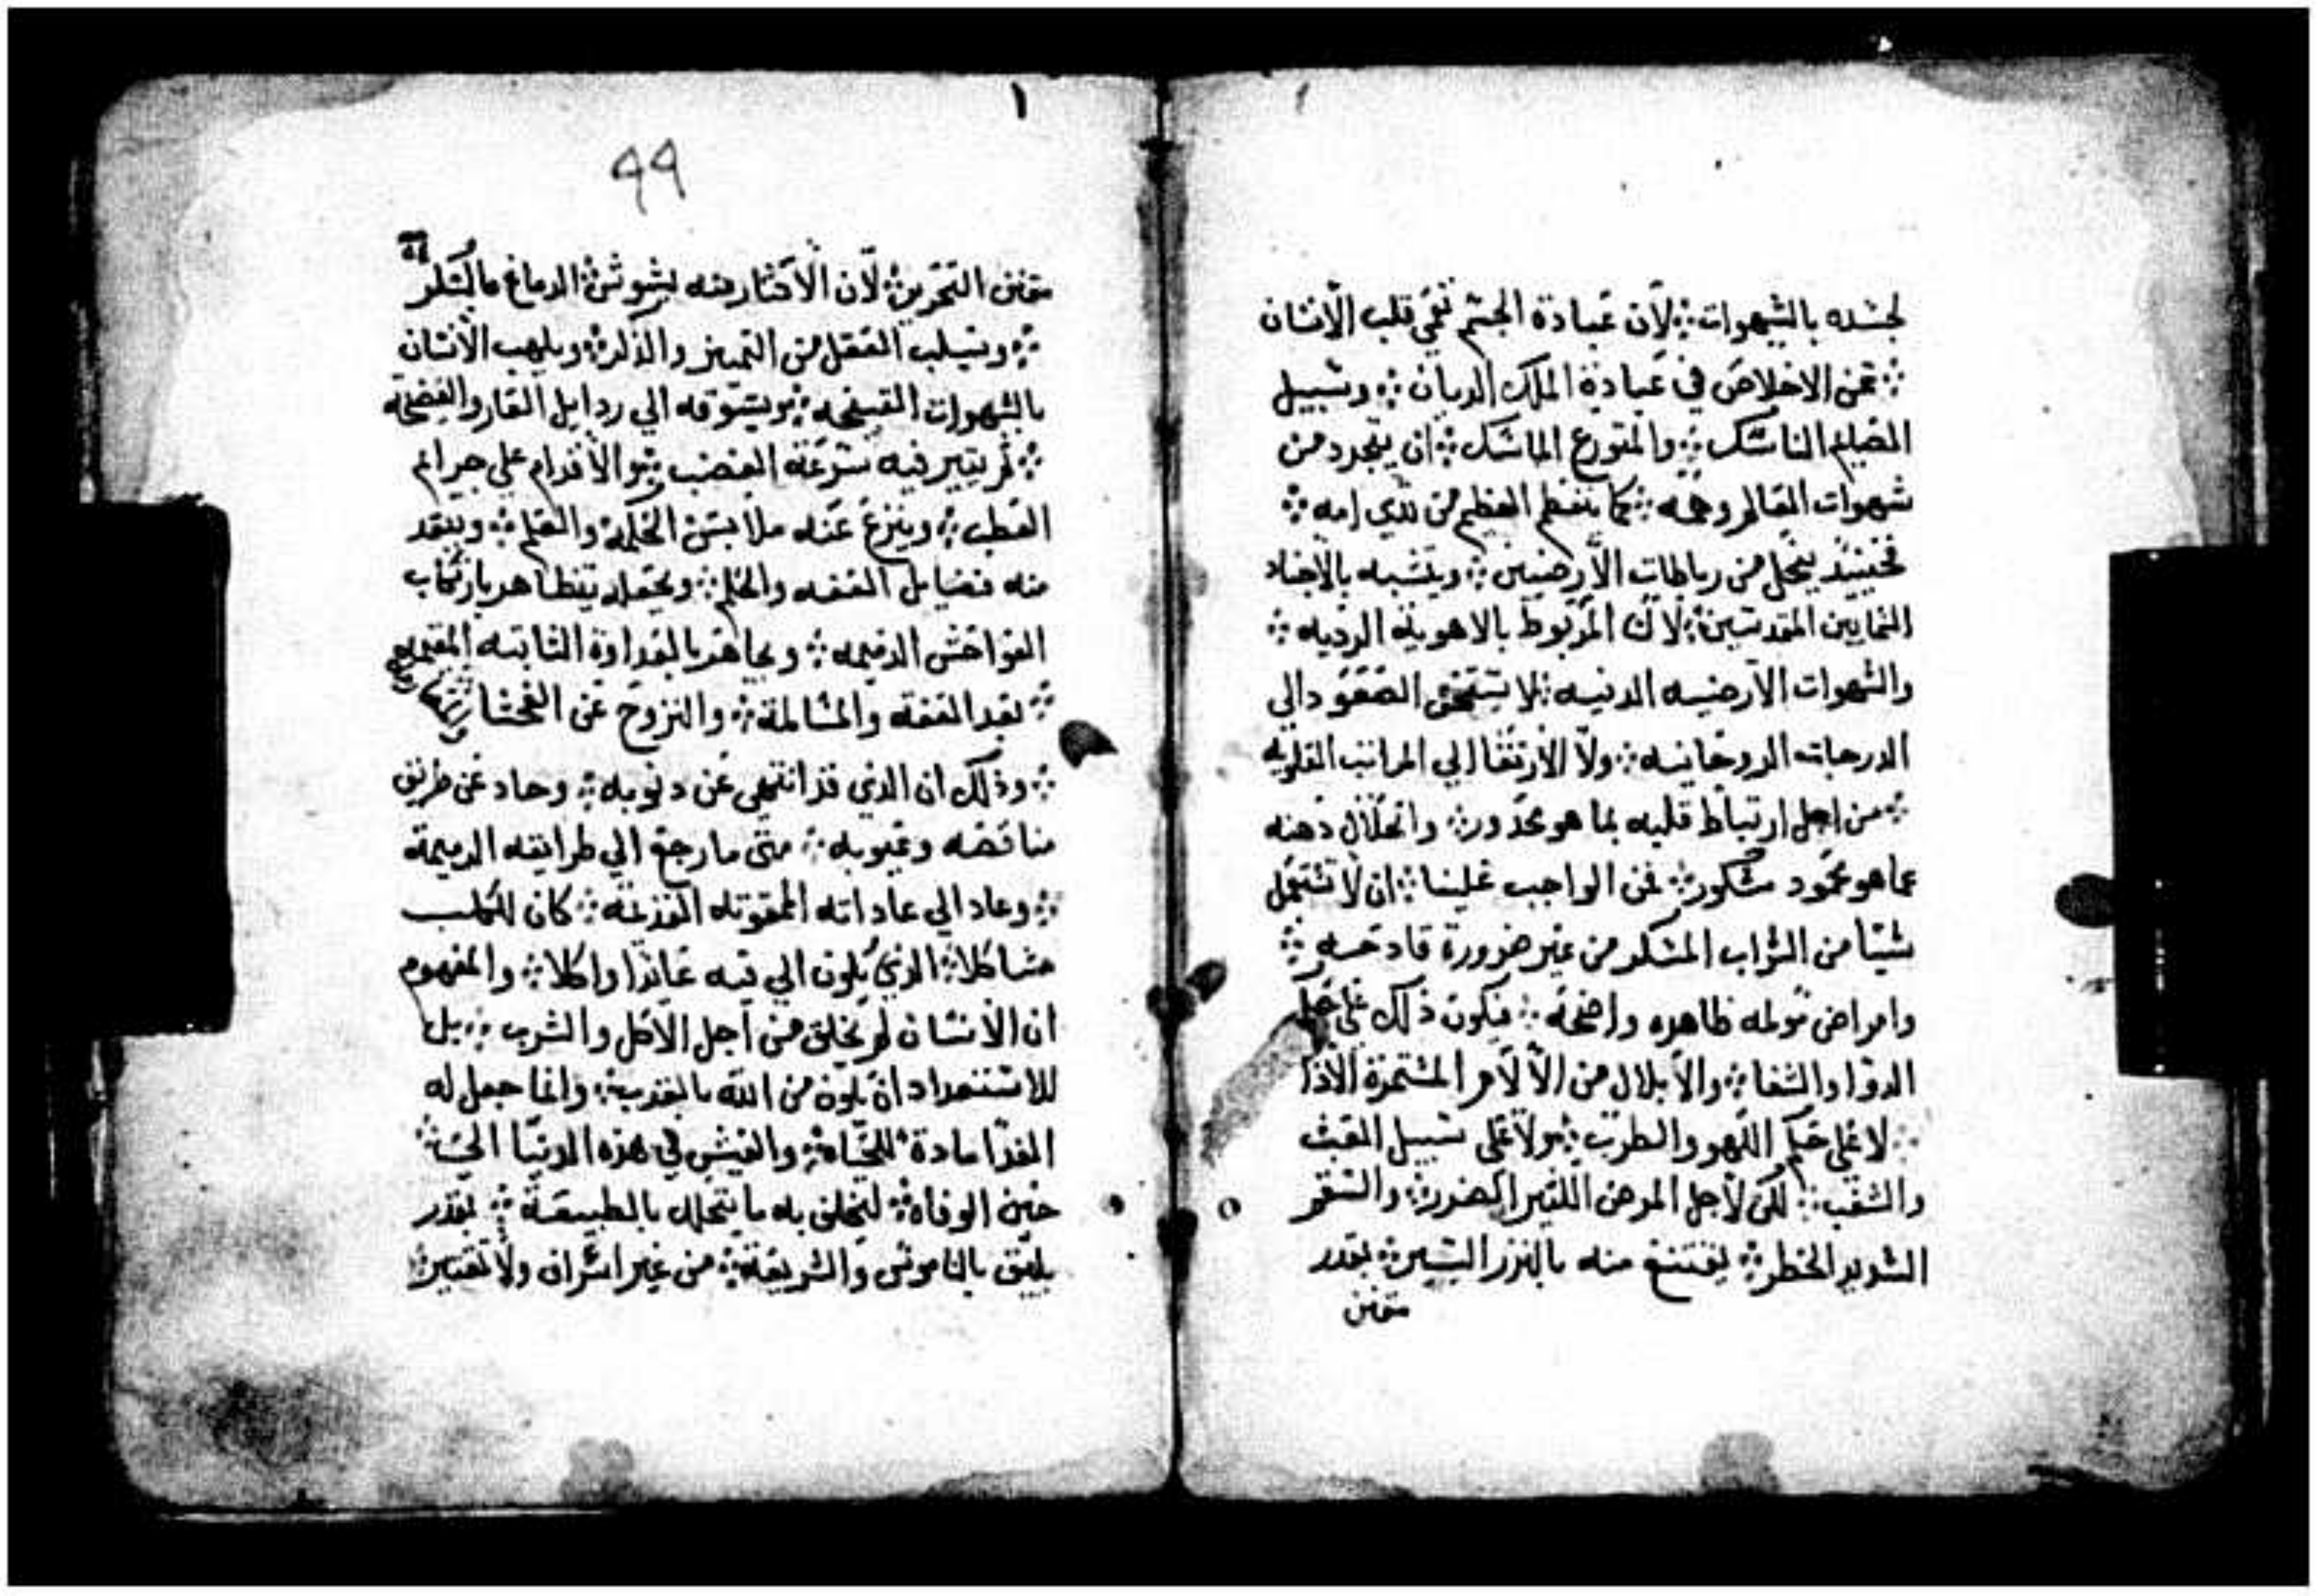 لجسده بالشهوات ܀ لان عبادة الجسم تعمي قلب الانسان
܀ عن الاخلاص في عبادة الملك الديان ܀ وسبيل
الناسك ܀ والمتورع الماسك ܀ ان يتجرد من
شهوات العالم وهمه ܀ كما ينفطم الفطيم من ثدي امه ܀
فحينيذ ينحل من رباطات الارضيين ܀ ويتشبه بالاجناد
السمايين المقدسين ܀ لان المربوط بالاهوية الرديه ܀
والشهوات الارضيه الدنيه ܀ لا يستحق الصعود الي
الدرجات الروحانيه ܀ ولا الارتقا الي المراتب العلويه
܀ من اجل ارتباط قلبه بما هو محدور ܀ وانحلال دهنه
عما هو محمود مشكور ܀ فمن الواجب علينا ܀ ان لا نستعمل
شيا من الشراب المسكر من غير ضرورة قادحه ܀
وامراض مولمه ظاهره واضحه ܀ فيكون ذلك علي
الدوا والشفا ܀ والابلال من الالام المستمرة الاذا
܀ لا علي حكم اللهو والطرب ܀ ولا علي سبيل العبث
والشغب ܀ لكن لاجل المرض الكثير الضرر ܀ والسقم
الشديد الخطر ܀ ليقتنع منه بالنزر اليسير ܀ بقدر
متقن
٩٩
متقن التحرير ܀ لان الاكثار منه يشوش الدماغ بالسكر
܀ ويسلب العقل من التمييز والذكر ܀ ويلهب الانسان
بالشهوات القبيحه ܀ ويسوقه الي ردايل العار والفضيحه
܀ ثم يثير فيه سرعة الغضب ܀ والاقدام علي جرايم
العطب ܀ وينزع عنه ملابس الحكمة والعلم ܀ ويفقد
منه فضايل العفه والحلم ܀ ويجعله يتظاهر بارتكاب
الفواحش الدميمه ܀ ويجاهر بالعداوة الثابته المقيمه
܀ بعد العفة والمسالمة ܀ والنزوح عن الفحشا
܀ وذلك ان الذي قد انتهي عن دنوبه ܀ وحاد عن طريق
مناقصه وعيوبه ܀ متي ما رجع الي طرايقه الدميمة
܀ وعاد الي عاداته الممقوته القديمة ܀ كان للكلب
مشاكلا ܀ الذي يكون الي قيه عايدا واكلا ܀ والمفهوم
ان الانسان لم يخلق من اجل الاكل والشرب ܀ بل
للاستعداد ان يكون من الله بالقرب ܀ وانما جعل له
الغدا مادة للحياة ܀ والعيش في هذه الدنيا الي ܀
حين الوفاة ܀ ليخلف به ما يتحلل بالطبيعة ܀ بقدر
يليق بالناموس والشريعة ܀ من غير اسراف ولا تقتير ܀